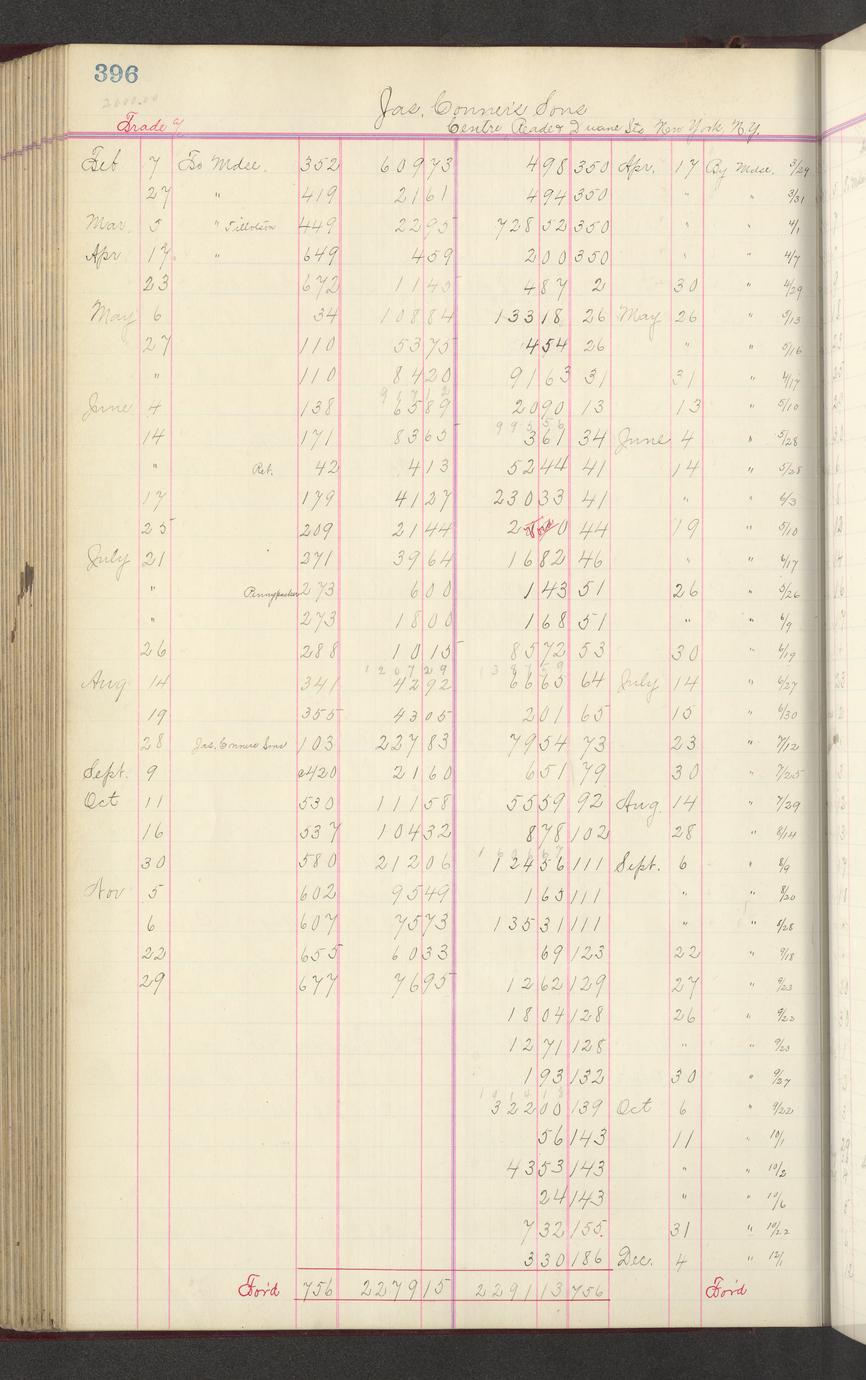 396
2000.00
Jas. Conner's Sons
Trade a/ Centre, Reade & Duane Sts, New York, N.Y.
Feb 7 To Mdse. 352 609 73 4 98 350 Apr. 17 By Mdse. 3/29
27 " 419 21 61 4 94 350 " " 3/31
Mar. 5 " Tillotson 449 22 95 728 52 350 " " 4/1
Apr 17 " 649 4 59 2 00 350 " " 4/7
23 672 11 45 4 87 2 30 " 4/29
May 6 34 108 84 133 18 26 May 26 " 5/13
27 110 53 75 4 54 26 " " 5/16
" 110 84 20 91 63 31 31 " 4/17
June 4 138 65 89 20 90 13 13 " 5/10
14 171 83 65 3 61 34 June 4 " 5/28
" Ret. 42 4 13 52 44 41 14 " 5/28
17 179 41 27 230 33 41 " " 6/3
25 209 21 44 44 19 " 5/10
July 21 271 39 64 16 82 46 " " 6/17
" Pennypacker 273 6 00 1 43 51 26 " 5/26
" 273 18 00 1 68 51 " " 6/9
26 288 10 15 85 72 53 30 " 6/19
Aug 14 341 42 92 66 65 64 July 14 " 6/27
19 355 43 05 2 01 65 15 " 6/30
28 Jas. Conners Sons 103 227 83 79 54 73 23 " 7/12
Sept. 9 420 21 60 6 51 79 30 " 7/25
Oct 11 530 111 58 55 59 92 Aug. 14 " 7/29
16 537 104 32 8 78 102 28 " 8/14
30 580 212 06 124 56 111 Sept. 6 " 8/9
Nov 5 602 95 49 1 65 111 " " 8/20
6 607 75 73 135 31 111 " " 8/28
22 655 60 33 69 123 22 " 9/18
29 677 76 95 12 62 129 27 " 9/23
18 04 128 26 " 9/22
12 71 128 " " 9/23
1 93 132 30 " 9/27
322 00 139 Oct 6 " 9/22
56 143 11 " 10/1
43 53 143 " " 10/2
24 143 " " 10/6
7 32 155 31 " 10/22
3 30 186 Dec. 4 " 12/1
For'd 756 2279 15 2291 13 756 For'd